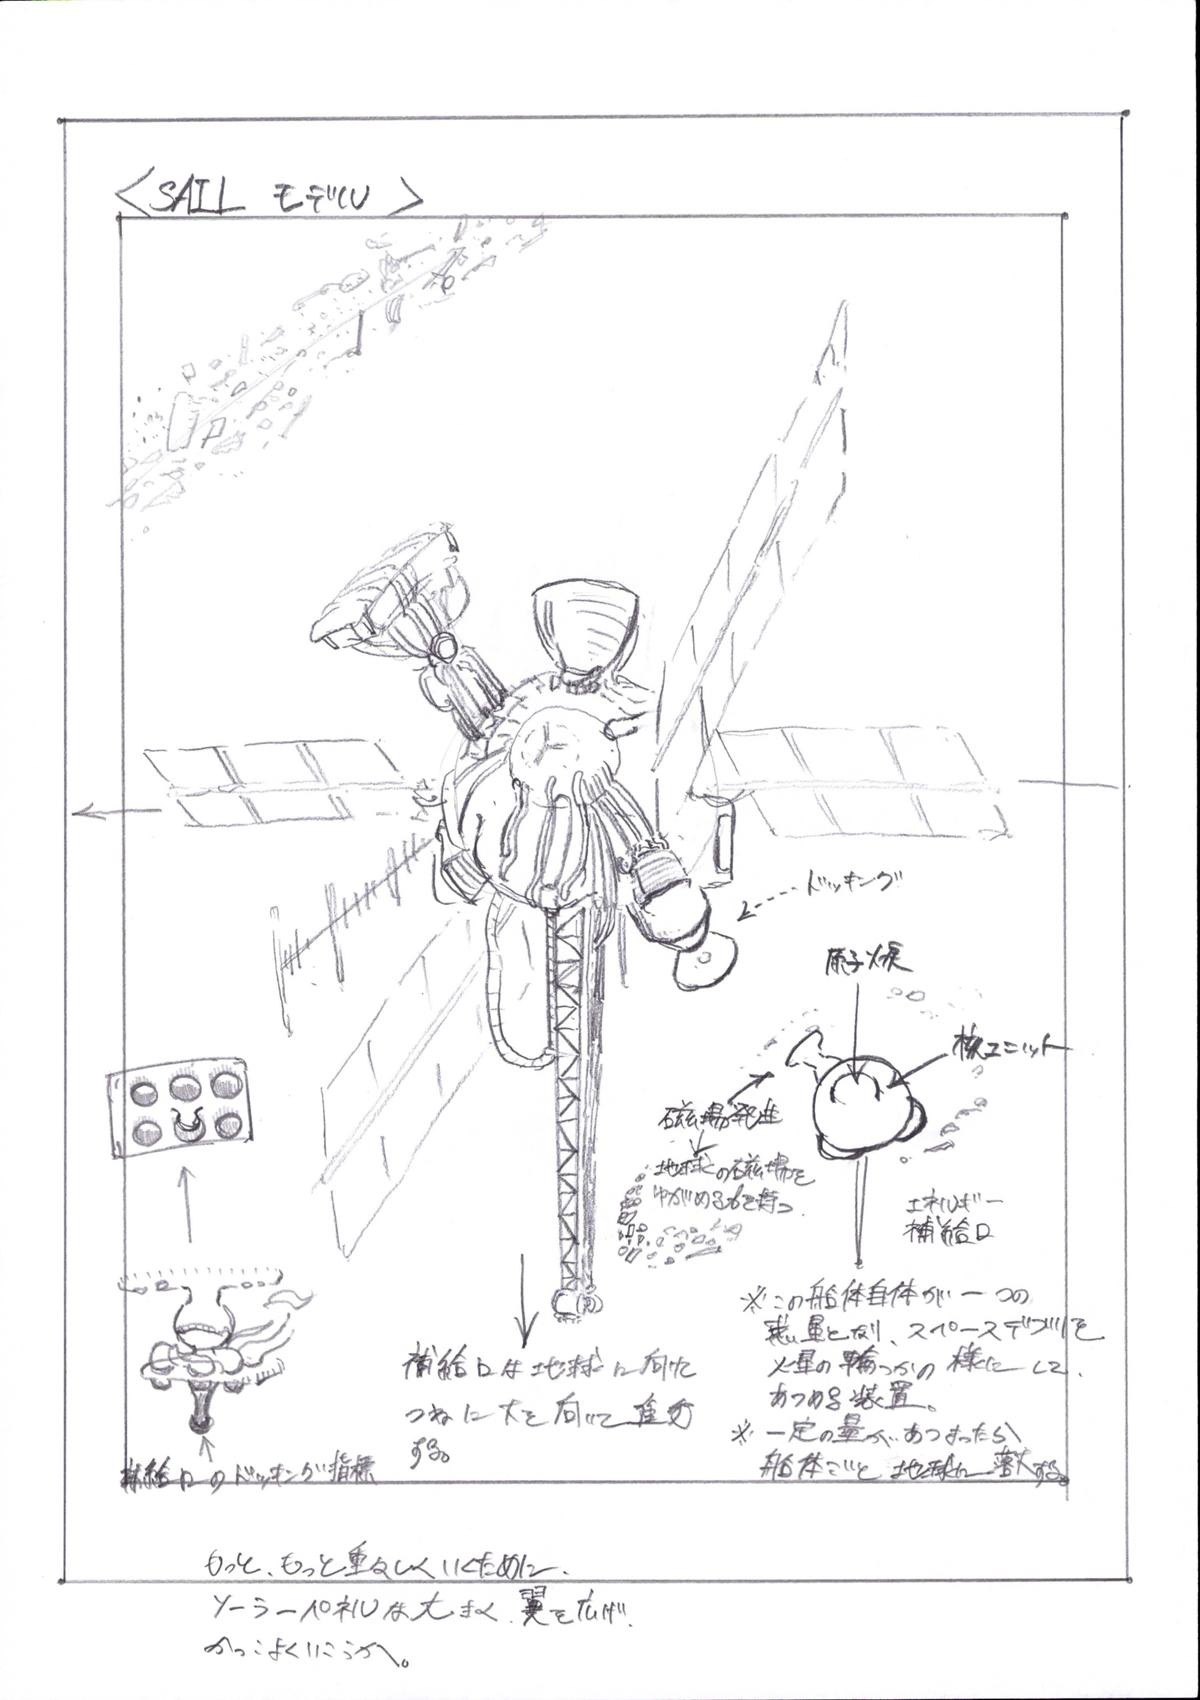 <SAIL モデル>
ドッキング
原子炉
核ユニット
磁場発生
地球の磁場を
ゆがめる力を持つ
エネルギー
補給口
※この船体自体が一つの
惑星となり、スペースデブリを
火星の輪っかの様にして、
あつめる装置。
※一定の量があつまったら
船体ごと地球に落下する。
補給口は地球に向け
つねに下を向いて
する。
補給口のドッキング指標
もっと、もっと重々しくいくために、
ソーラーパネルは大きく、翼を広げ、
かっこよくいこうか。